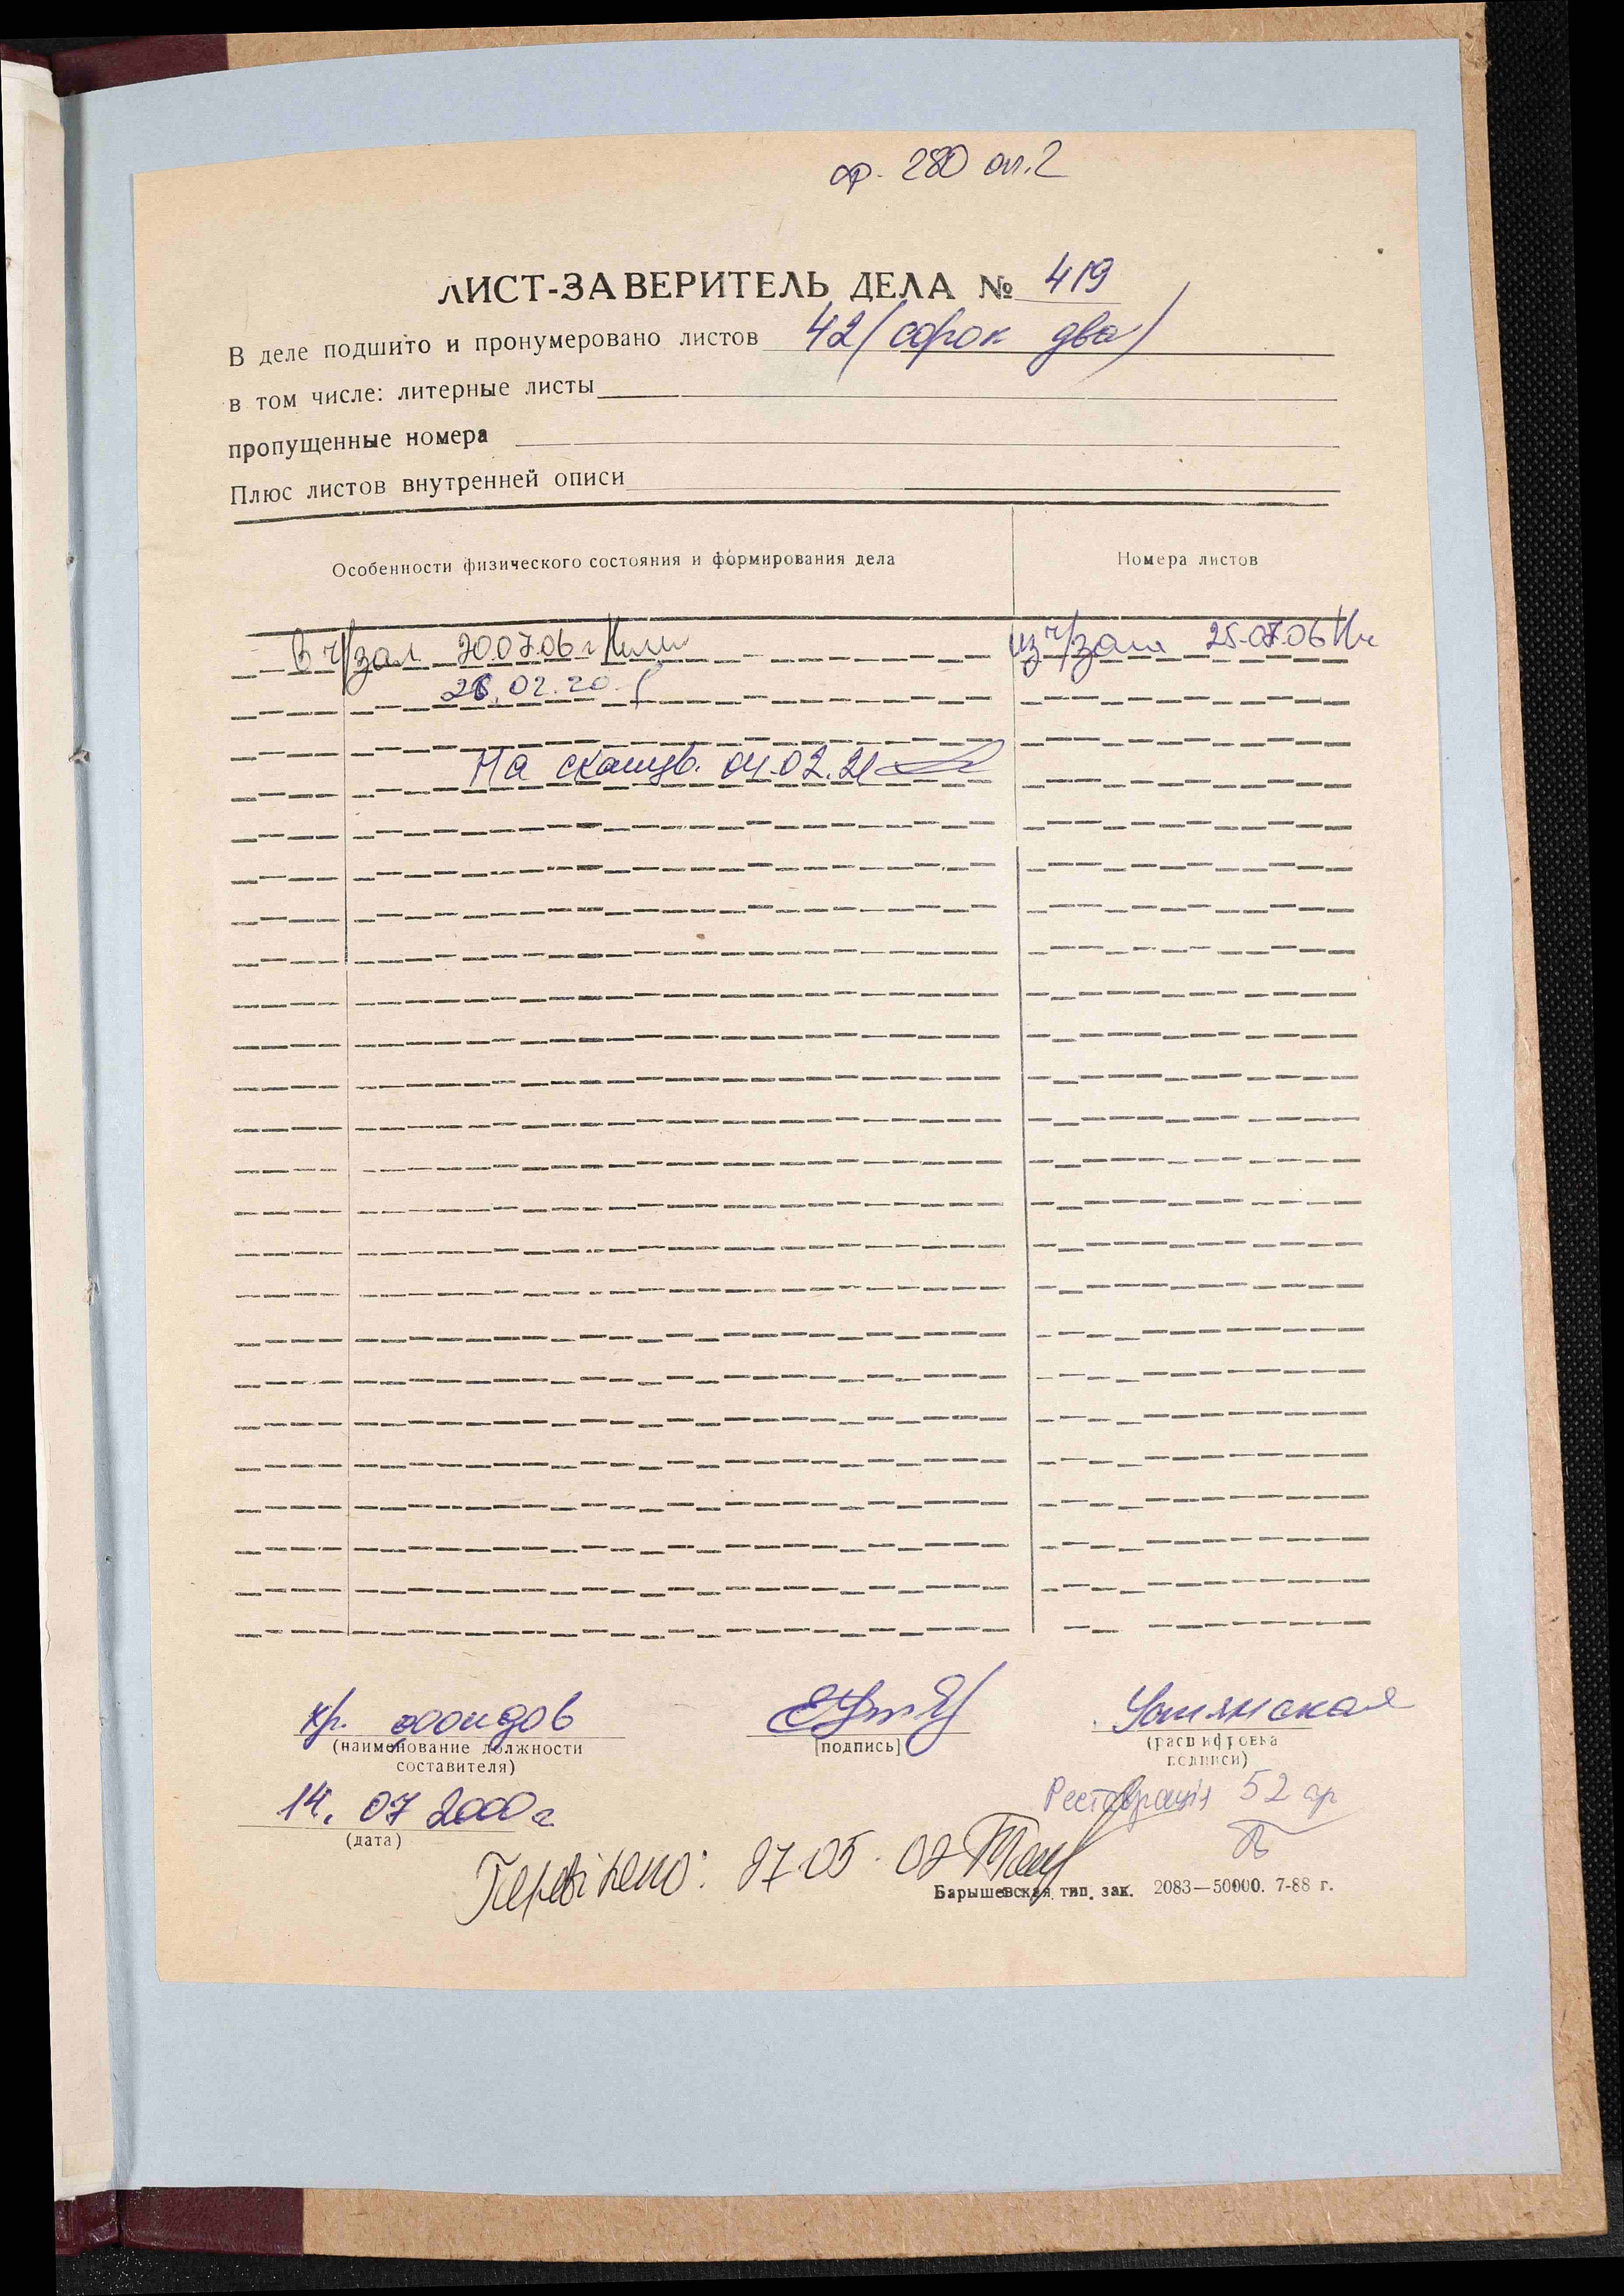 ф. 280 оп. 2
ЛИСТ-ЗАВЕРИТЕЛЬ ДЕЛА № 419
В деле подшито и пронумеровано листов 42 (сорок два)
в том числе: литерные листы
пропущенные номера
Плюс листов внутренней описи
Особенности физического состояния и формирования дела Номера листов
В ч/зал 20.07.06 г из ч/зала 25.07.06
02.20
На сканув. 04.02.21
хр. фондов Устянская
(наименование должности составителя) (подпись) (расшифровка подписи)
14. 07 2000 г
(дата)
Реставрація 52 ар
Перевірено: 27 05. 02
Барышевская тип. зак. 2083—50000. 7-88 г.